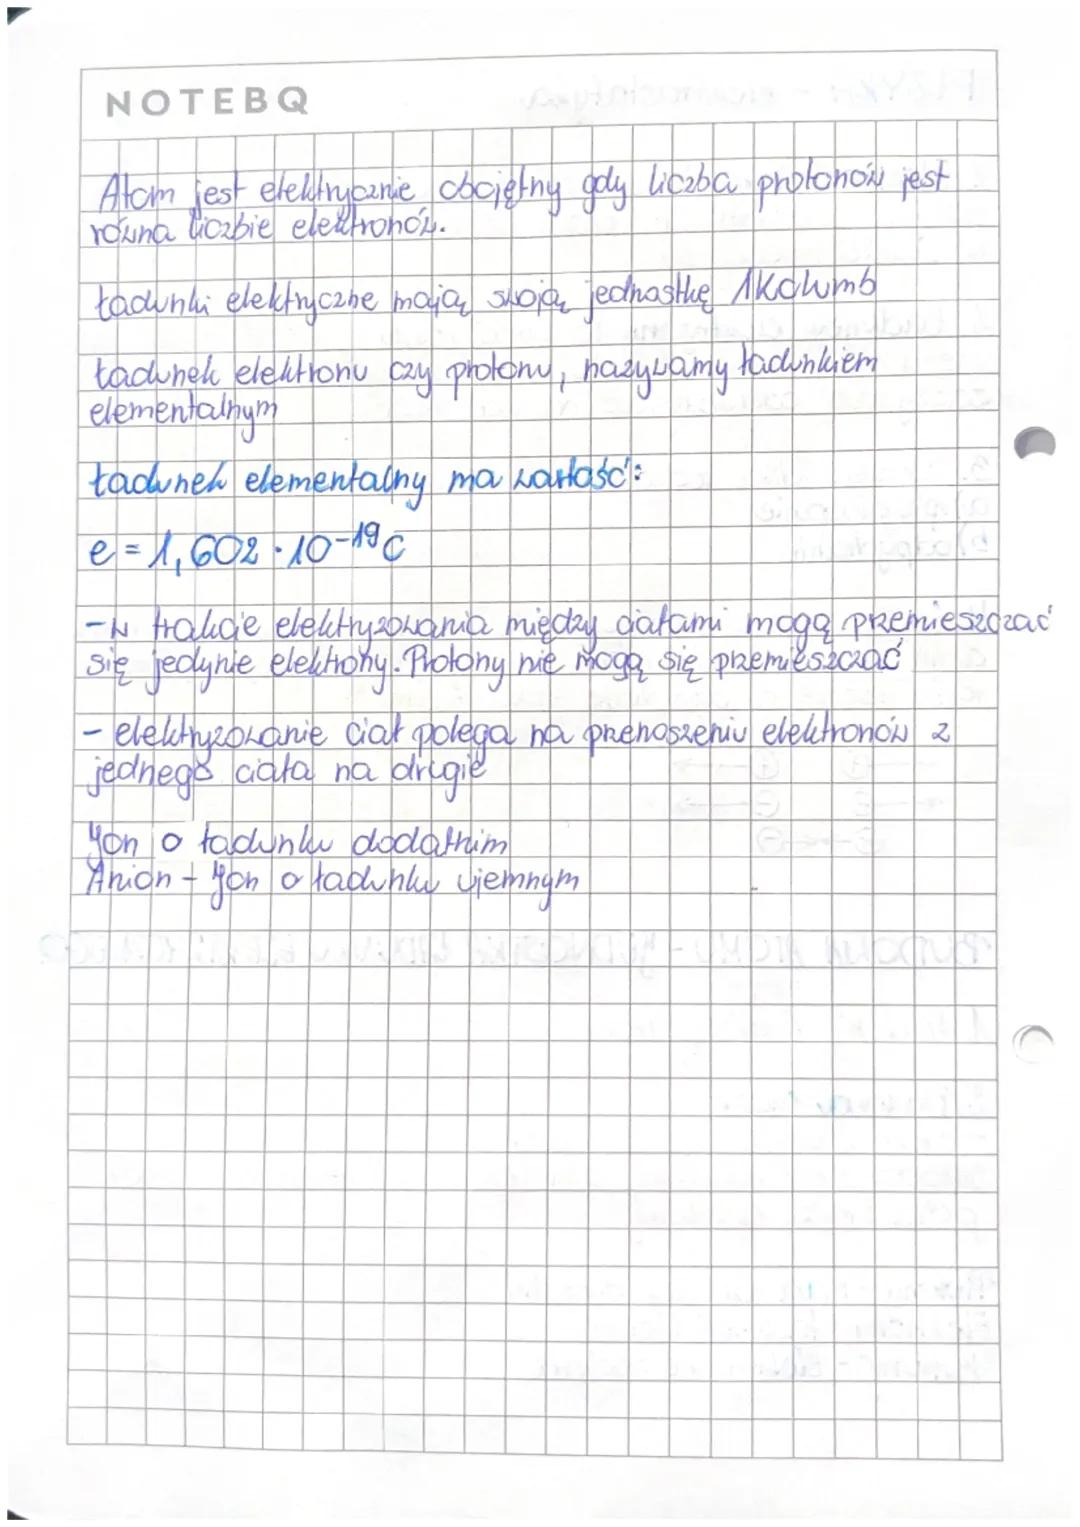 NOTEBQ
Atom jest elektrycznie obojętny gdy liczba protonów jest
równa liczbie elektronów.
Ładunki elektryczne mają swoją jednostkę 1Kolumb
Ładunek elektronu czy protonu, nazywamy ładunkiem
elementalnym
Ładunek elementalny ma wartość:
e = 1,602 · 10⁻¹⁹ C
- W trakcie elektryzowania między ciałami mogą przemieszczać
się jedynie elektrony. Protony nie mogą się przemieszczać
- elektryzowanie ciał polega na przenoszeniu elektronów z
jednego ciała na drugie
Yon o ładunku dodatnim
Anion - Yon o ładunku ujemnym